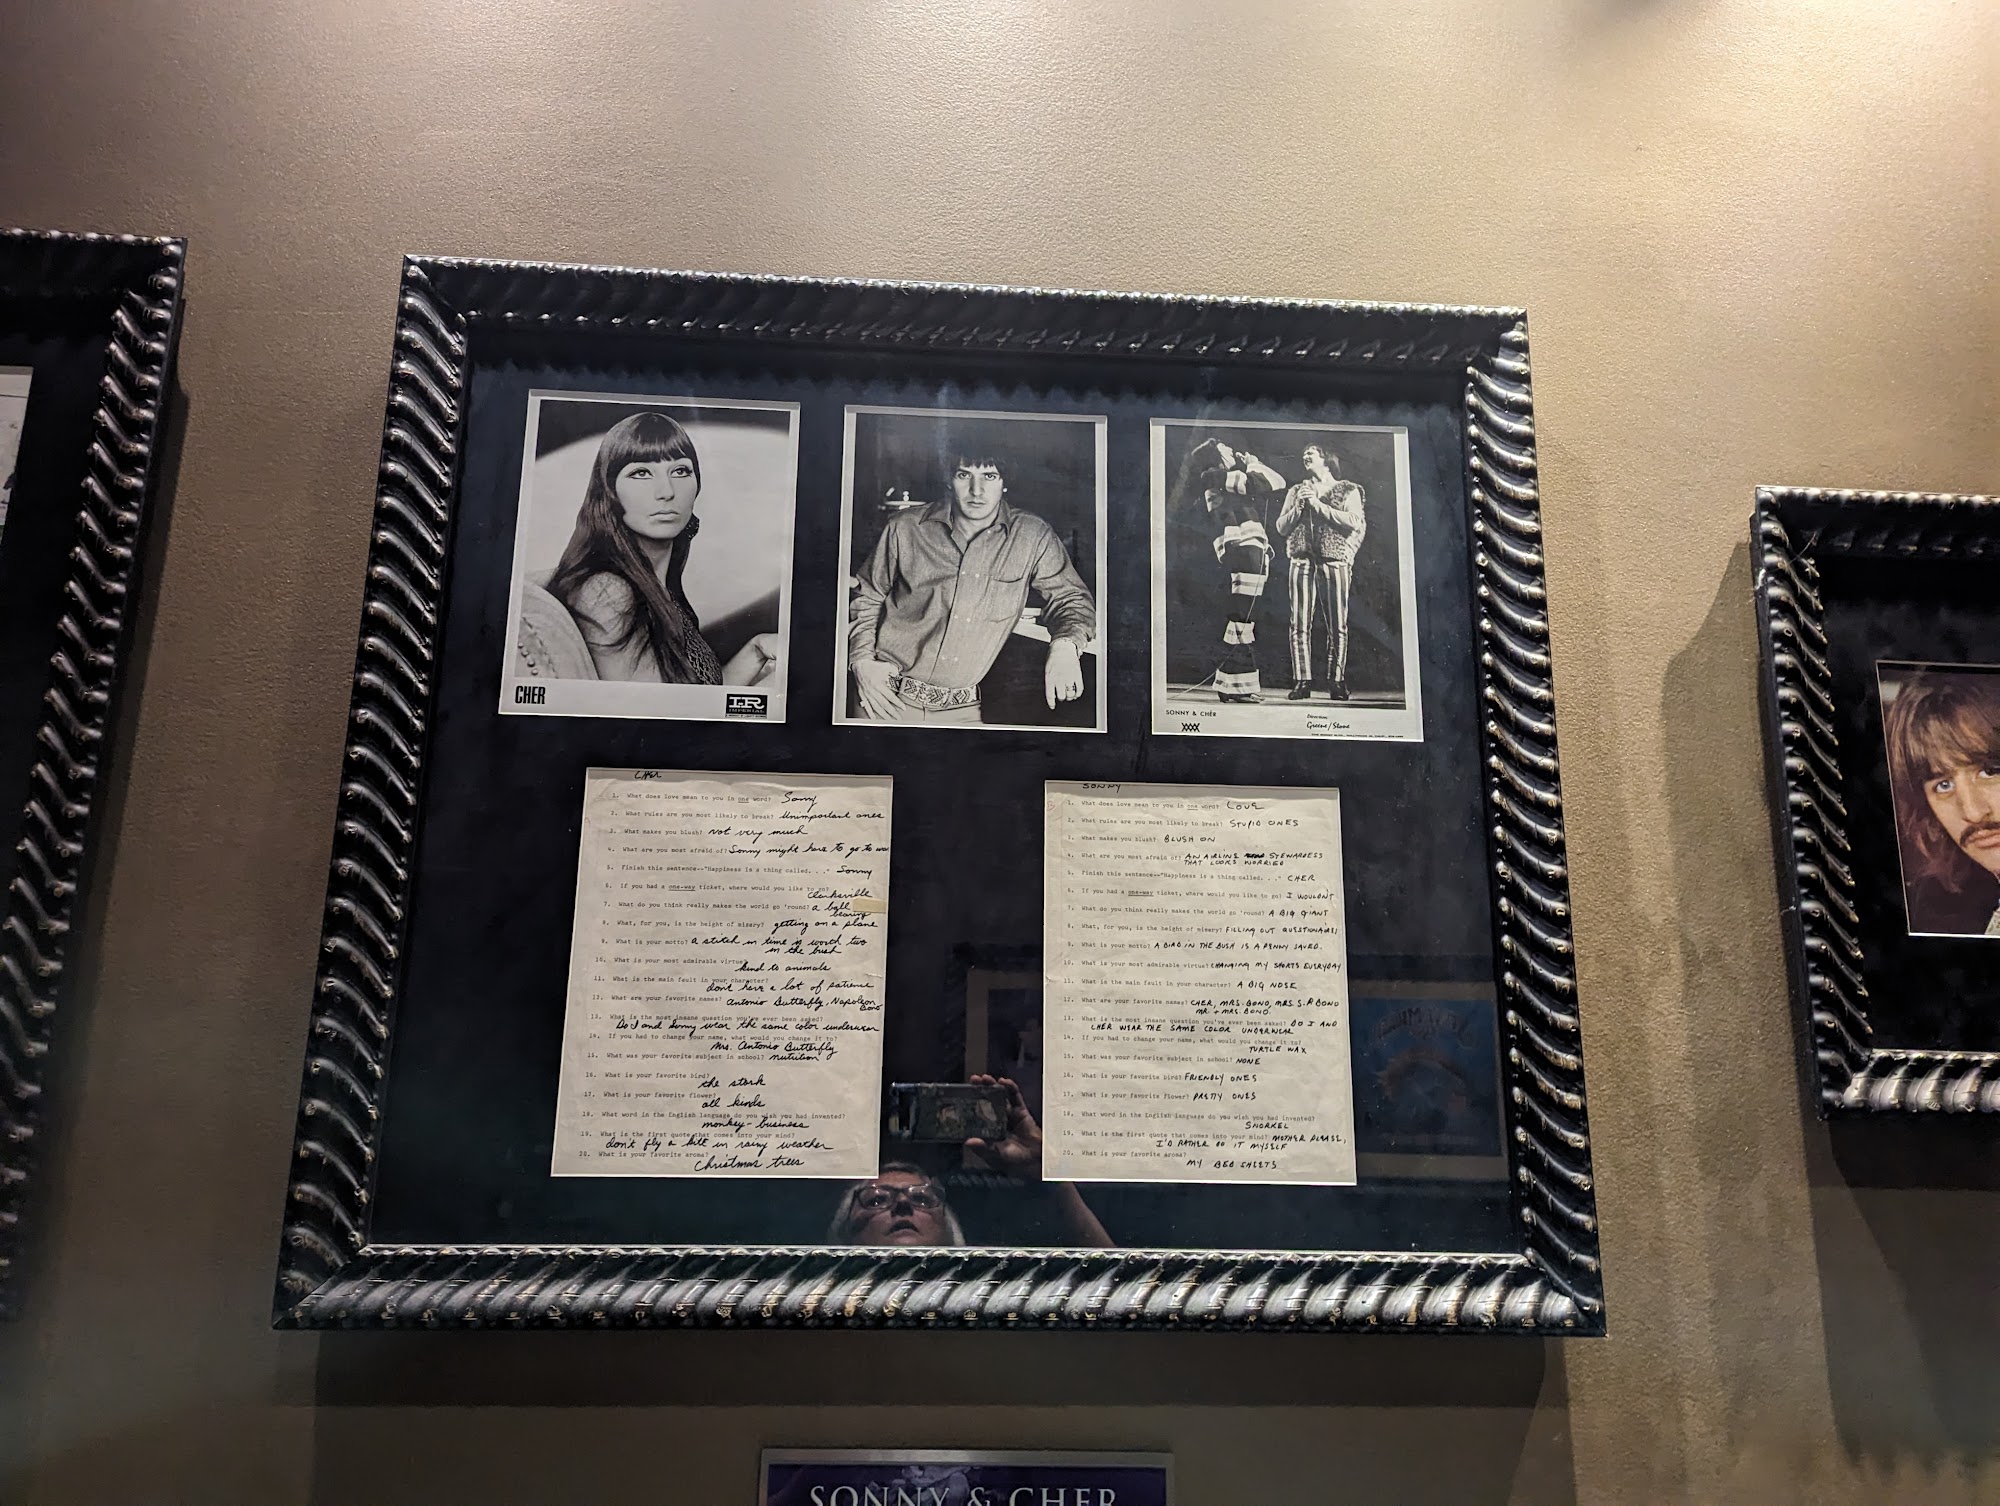 CHER
IR
IMPERIAL
SONNY & CHÉR
Direction:
Greene/Stone
CHER
1. What does love mean to you in one word? Sonny
2. What rules are you most likely to break? Unimportant ones
3. What makes you blush? Not very much
4. What are you most afraid of? Sonny might have to go to war
5. Finish this sentence--"Happiness is a thing called. . ." Sonny
6. If you had a one-way ticket, where would you like to go?
Clarksville
7. What do you think really makes the world go 'round? a ball
bearing
8. What, for you, is the height of misery? getting on a plane
9. What is your motto? a stitch in time is worth two
in the bush
10. What is your most admirable virtue?
kind to animals
11. What is the main fault in your character?
don't have a lot of patience
12. What are your favorite names? Antonio Butterfly, Napoleon
Bono
13. What is the most insane question you've ever been asked?
Do I and Sonny wear the same color underwear
14. If you had to change your name, what would you change it to?
Mrs. Antonio Butterfly
15. What was your favorite subject in school? nutrition
16. What is your favorite bird?
the stork
17. What is your favorite flower?
all kinds
18. What word in the English language do you wish you had invented?
monkey-business
19. What is the first quote that comes into your mind?
don't fly a kite in rainy weather
20. What is your favorite aroma?
Christmas trees
SONNY
1. What does love mean to you in one word? LOVE
2. What rules are you most likely to break? STUPID ONES
3. What makes you blush? BLUSH ON
4. What are you most afraid of? AN AIRLINE STEWARDESS
THAT LOOKS WORRIED
5. Finish this sentence--"Happiness is a thing called. . ." CHER
6. If you had a one-way ticket, where would you like to go? I WOULDN'T
7. What do you think really makes the world go 'round? A BIG GIANT
8. What, for you, is the height of misery? FILLING OUT QUESTIONAIRES
9. What is your motto? A BIRD IN THE BUSH IS A PENNY SAVED.
10. What is your most admirable virtue? CHANGING MY SHORTS EVERYDAY
11. What is the main fault in your character? A BIG NOSE
12. What are your favorite names? CHER, MRS. BONO, MRS. S. P. BONO
MR. + MRS. BONO.
13. What is the most insane question you've ever been asked? DO I AND
CHER WEAR THE SAME COLOR UNDERWEAR
14. If you had to change your name, what would you change it to?
TURTLE WAX
15. What was your favorite subject in school? NONE
16. What is your favorite bird? FRIENDLY ONES
17. What is your favorite flower? PRETTY ONES
18. What word in the English language do you wish you had invented?
SNORKEL
19. What is the first quote that comes into your mind? MOTHER PLEASE,
I'D RATHER DO IT MYSELF
20. What is your favorite aroma?
MY BED SHEETS
SONNY & CHER